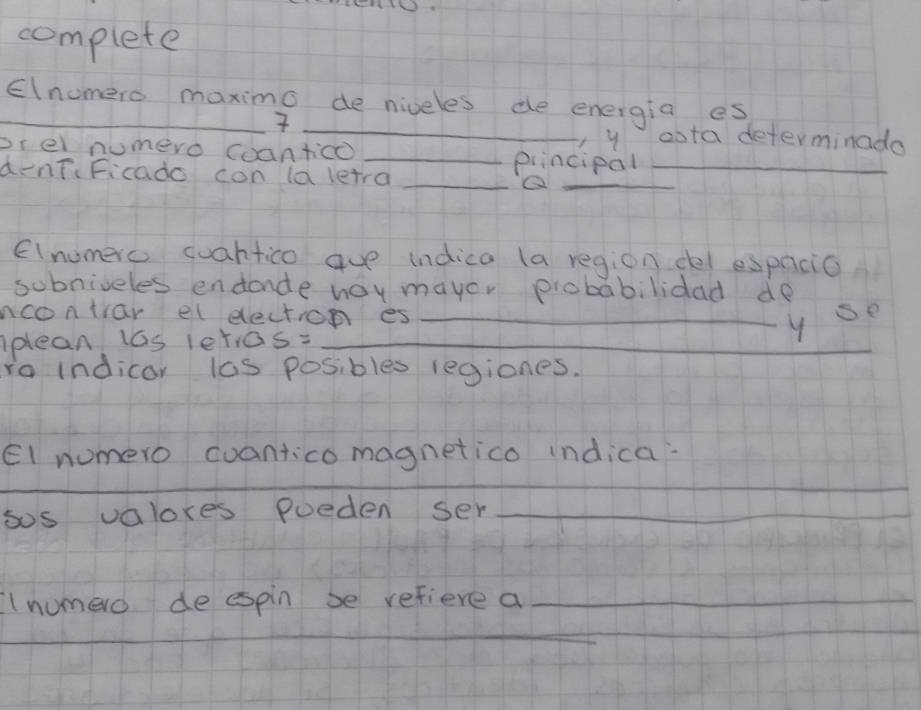 complete
El numero maximo de niveles de energia es
7, y esta determinado
or el numero cuantico principal
dentificado con la letra Q
El numero cuantico que indica la region del espacio
subniveles en donde hay mayor probabilidad de
ncontrar el electron es y se
plean las letras=
ra indicar las posibles regiones.
El numero cuantico magnetico indica:
sus valores pueden ser
l numero de espin se refiere a